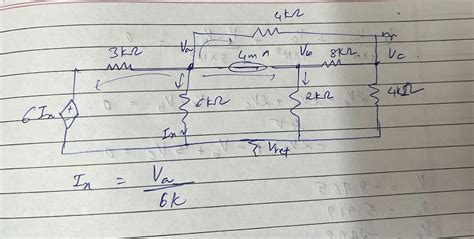 4kΩ
3kΩ Va 4mA Vb 8kΩ Vc
6Ix 6kΩ 2kΩ 4kΩ
Ix
Vref
Ix = Va
6k